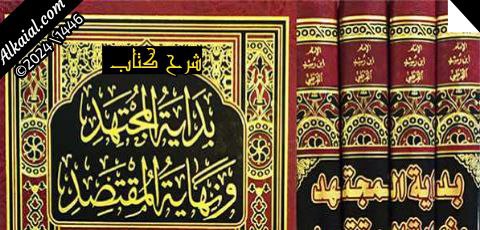 Alkaial.com
©2024\1446
شرح كتاب
بداية المجتهد
ونهاية المقتصد
الإمام
ابن رشد
القرطبي
الإمام
ابن رشد
القرطبي
الإمام
ابن رشد
القرطبي
الإمام
ابن رشد
القرطبي
بداية المجتهد
ونهاية المقتصد